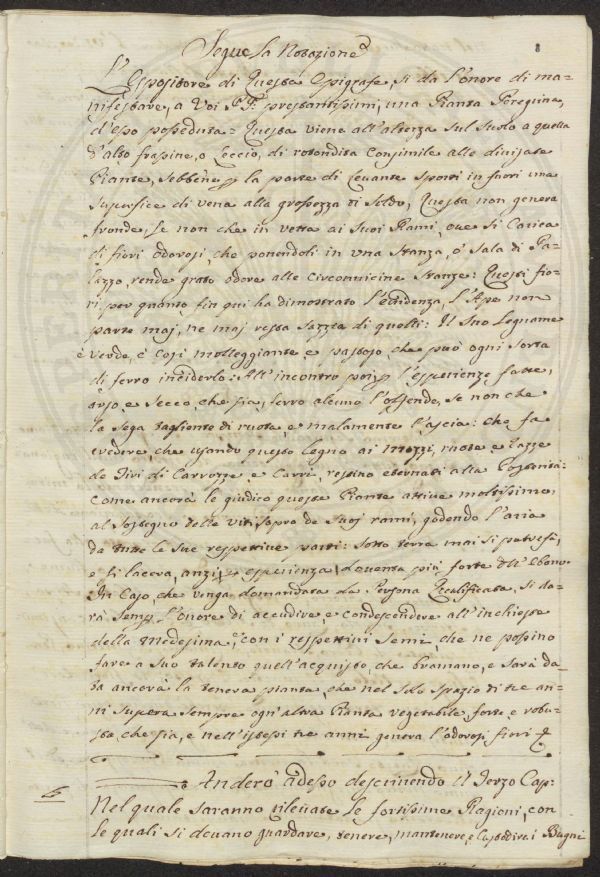 Segue la Notazione
8
L'Espositore di Questa Epigrafe, si da l'onore di ma=
nifestare, a Voi PP: prestantissimi, una Pianta Peregrina,
d'esso posseduta = Questa viene all'altezza sul suolo a quella
d'alto frassine, o Leccio, di rotondita consimile alle divisate
Piante, sebbene p la parte di Levante sporti in fuori una
superfice di vena alla grossezza di soldo, Questa non genera
fronde, se non che in vetta ai suoi Rami, ove si Carica
di fiori odorosi, che ponendoli in una Stanza, o' Sala di Pa=
lazzo, rende grato odore alle Circonvicine Stanze: Questi fio=
ri, per quanto fin qui ha dimostrato l'evidenza, l'Ape non
parte maj, ne maj resta sazzia di quelli: Il Suo Legname
è verde, è Cosi molleggiante e pastoso, che può ogni sorta
di ferro inciderlo: All'incontro poi p l'esperienze fatte,
arso e Secco, che sia, ferro alcuno l'offende, se non che
la Sega tagliente di ruota, e malamente l'ascia: che fa
vedere che usando questo Legno ai Mozzi, ruote e Tazze
de Tiri di Carrozze e Carri, restino eternati alla Costanza:
Come ancora le giudico queste Piante attive moltissimo,
al Sostegno delle viti sopra de suoj rami, godendo l'aria
da tutte le sue respettive parti: Sotto terra mai si putrefà,
e si lacera, anzi, p esperienza, doventa più forte dell'Ebano
In Caso, che venga domandata da Persona Realificata, si da=
rà Semp l'onore di accudire, e condescendere all'inchiesta
della Medesima, con i respettivi Semi, che ne possino
fare a Suo talento quell'acquisto, che bramano, e Sarà da=
ta ancora la tenera pianta, che nel solo spazio di tre an=
ni supera sempre ogn'altra Pianta vegetabile forte e robu=
sta, che sia, e nell'istessi tre anni genera l'odorosi fiori
Anderò adesso descrivendo il Terzo Cap:
Nel quale saranno rilevate le fortissime Ragioni, con
le quali si devano guardare, tenere, mantenere, e Custodire i Bagni